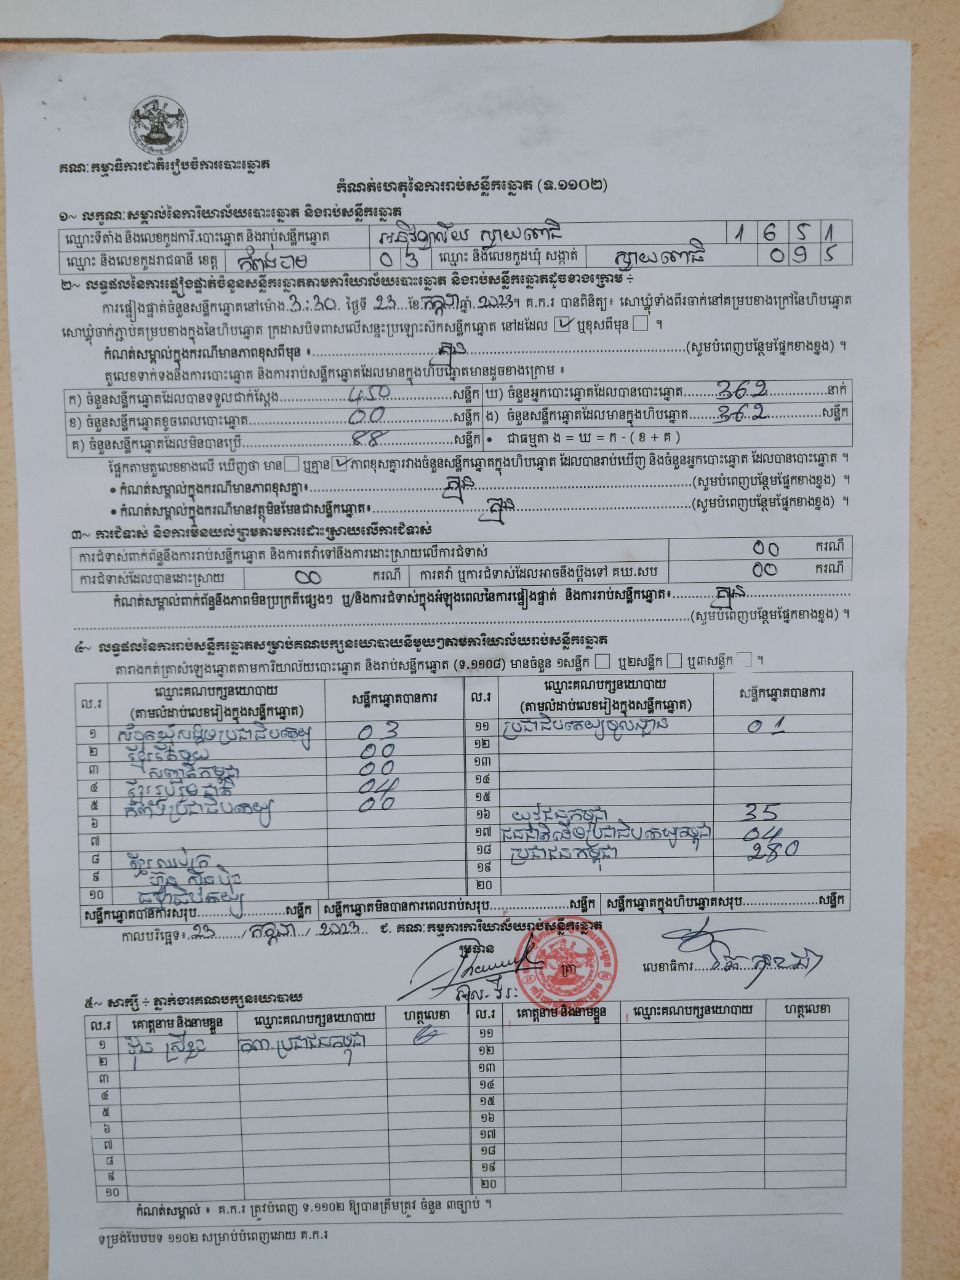 គណៈកម្មាធិការជាតិរៀបចំការបោះឆ្នោត
កំណត់ហេតុនៃការរាប់សន្លឹកឆ្នោត (ទ.១១០២)
១~ លក្ខណៈសម្គាល់នៃការិយាល័យបោះឆ្នោត និងរាប់សន្លឹកឆ្នោត
ឈ្មោះទីតាំង និងលេខកូដការិ.បោះឆ្នោត និងរាប់សន្លឹកឆ្នោត អនុវិទ្យាល័យ ស្វាយពោធិ៍ 1 6 5 1
ឈ្មោះ និងលេខកូដរាជធានី ខេត្ត កំពង់ចាម 0 3 ឈ្មោះ និងលេខកូដឃុំ សង្កាត់ ស្វាយពោធិ៍ 0 9 5
២~ លទ្ធផលនៃការផ្ទៀងផ្ទាត់ចំនួនសន្លឹកឆ្នោតតាមការិយាល័យបោះឆ្នោត និងរាប់សន្លឹកឆ្នោតដូចខាងក្រោម ÷
ការផ្ទៀងផ្ទាត់ចំនួនសន្លឹកឆ្នោតនៅម៉ោង 3:30 ថ្ងៃទី 23 ខែ កក្កដា ឆ្នាំ 2023។ គ.ក.រ បានពិនិត្យ៖ សោឃ្លុំទាំងពីរចាក់នៅគម្របខាងក្រៅនៃហិបឆ្នោត
សោឃ្លុំចាក់ភ្ជាប់គម្របខាងក្នុងនៃហិបឆ្នោត ក្រដាសបិទពាសលើសន្ទះប្រឡោះស៊កសន្លឹកឆ្នោត នៅដដែល ☑ ឬខុសពីមុន ☐ ។
កំណត់សម្គាល់ក្នុងករណីមានភាពខុសពីមុន ៖ គ្មាន (សូមបំពេញបន្ថែមផ្នែកខាងខ្នង) ។
តួលេខទាក់ទងនឹងការបោះឆ្នោត និងការរាប់សន្លឹកឆ្នោតដែលមានក្នុងហិបឆ្នោតមានដូចខាងក្រោម ៖
ក) ចំនួនសន្លឹកឆ្នោតដែលបានទទួលជាក់ស្តែង 450 សន្លឹក ឃ) ចំនួនអ្នកបោះឆ្នោតដែលបានបោះឆ្នោត 362 នាក់
ខ) ចំនួនសន្លឹកឆ្នោតខូចពេលបោះឆ្នោត 00 សន្លឹក ង) ចំនួនសន្លឹកឆ្នោតដែលមានក្នុងហិបឆ្នោត 362 សន្លឹក
គ) ចំនួនសន្លឹកឆ្នោតដែលមិនបានប្រើ 88 សន្លឹក • ជាធម្មតា ង = ឃ = ក - ( ខ + គ )
ផ្អែកតាមតួលេខខាងលើ ឃើញថា មាន ☐ ឬគ្មាន ☑ ភាពខុសគ្នារវាងចំនួនសន្លឹកឆ្នោតក្នុងហិបឆ្នោត ដែលបានរាប់ឃើញ និងចំនួនអ្នកបោះឆ្នោត ដែលបានបោះឆ្នោត ។
• កំណត់សម្គាល់ក្នុងករណីមានភាពខុសគ្នា៖ គ្មាន (សូមបំពេញបន្ថែមផ្នែកខាងខ្នង) ។
• កំណត់សម្គាល់ក្នុងករណីមានវត្ថុមិនមែនជាសន្លឹកឆ្នោត៖ គ្មាន (សូមបំពេញបន្ថែមផ្នែកខាងខ្នង) ។
៣~ ការជំទាស់ និងការមិនយល់ព្រមតាមការដោះស្រាយលើការជំទាស់
ការជំទាស់ពាក់ព័ន្ធនឹងការរាប់សន្លឹកឆ្នោត និងការតវ៉ាទៅនឹងការដោះស្រាយលើការជំទាស់ 00 ករណី
ការជំទាស់ដែលបានដោះស្រាយ 00 ករណី ការតវ៉ា ឬការជំទាស់ដែលអាចនឹងប្តឹងទៅ គឃ.សប 00 ករណី
កំណត់សម្គាល់ពាក់ព័ន្ធនឹងភាពមិនប្រក្រតីផ្សេងៗ ឬ/និងការជំទាស់ក្នុងអំឡុងពេលនៃការផ្ទៀងផ្ទាត់ និងការរាប់សន្លឹកឆ្នោត៖ គ្មាន
(សូមបំពេញបន្ថែមផ្នែកខាងខ្នង) ។
៤~ លទ្ធផលនៃការរាប់សន្លឹកឆ្នោតសម្រាប់គណបក្សនយោបាយនីមួយៗតាមការិយាល័យរាប់សន្លឹកឆ្នោត
តារាងកត់ត្រាសំឡេងឆ្នោតតាមការិយាល័យបោះឆ្នោត និងរាប់សន្លឹកឆ្នោត (ទ.១១០៨) មានចំនួន ១សន្លឹក ☐ ឬ២សន្លឹក ☐ ឬ៣សន្លឹក ☐ ។
ល.រ ឈ្មោះគណបក្សនយោបាយ (តាមលំដាប់លេខរៀងក្នុងសន្លឹកឆ្នោត) សន្លឹកឆ្នោតបានការ ល.រ ឈ្មោះគណបក្សនយោបាយ (តាមលំដាប់លេខរៀងក្នុងសន្លឹកឆ្នោត) សន្លឹកឆ្នោតបានការ
១ សំបុកឃ្មុំសង្គមប្រជាធិបតេយ្យ 03 ១១ ប្រជាធិបតេយ្យមូលដ្ឋាន 01
២ ខ្មែរតែមួយ 00 ១២
៣ សញ្ជាតិកម្ពុជា 00 ១៣
៤ ខ្មែររួបរួមជាតិ 04 ១៤
៥ កំលាំងប្រជាធិបតេយ្យ 00 ១៥
៦ ១៦ យុវជនកម្ពុជា 35
៧ ១៧ ជនជាតិដើមប្រជាធិបតេយ្យកម្ពុជា 04
៨ ខ្មែរឈប់ក្រ ១៨ ប្រជាជនកម្ពុជា 280
៩ ហ៊្វុនស៊ិនប៉ិច ១៩
១០ ធម្មាធិបតេយ្យ ២០
សន្លឹកឆ្នោតបានការសរុប សន្លឹក សន្លឹកឆ្នោតមិនបានការពេលរាប់សរុប សន្លឹក សន្លឹកឆ្នោតក្នុងហិបឆ្នោតសរុប សន្លឹក
កាលបរិច្ឆេទ៖ 23 / កក្កដា / 2023 ជ. គណៈកម្មការការិយាល័យរាប់សន្លឹកឆ្នោត
ប្រធាន ត្រា លេខាធិការ
៥~ សាក្សី ÷ ភ្នាក់ងារគណបក្សនយោបាយ
ល.រ គោត្តនាម និងនាមខ្លួន ឈ្មោះគណបក្សនយោបាយ ហត្ថលេខា ល.រ គោត្តនាម និងនាមខ្លួន ឈ្មោះគណបក្សនយោបាយ ហត្ថលេខា
១ គណ.ប្រជាជនកម្ពុជា ១១
២ ១២
៣ ១៣
៤ ១៤
៥ ១៥
៦ ១៦
៧ ១៧
៨ ១៨
៩ ១៩
១០ ២០
កំណត់សម្គាល់ ៖ គ.ក.រ ត្រូវបំពេញ ទ.១១០២ ឱ្យបានត្រឹមត្រូវ ចំនួន ៣ច្បាប់ ។
ទម្រង់បែបបទ ១១០២ សម្រាប់បំពេញដោយ គ.ក.រ